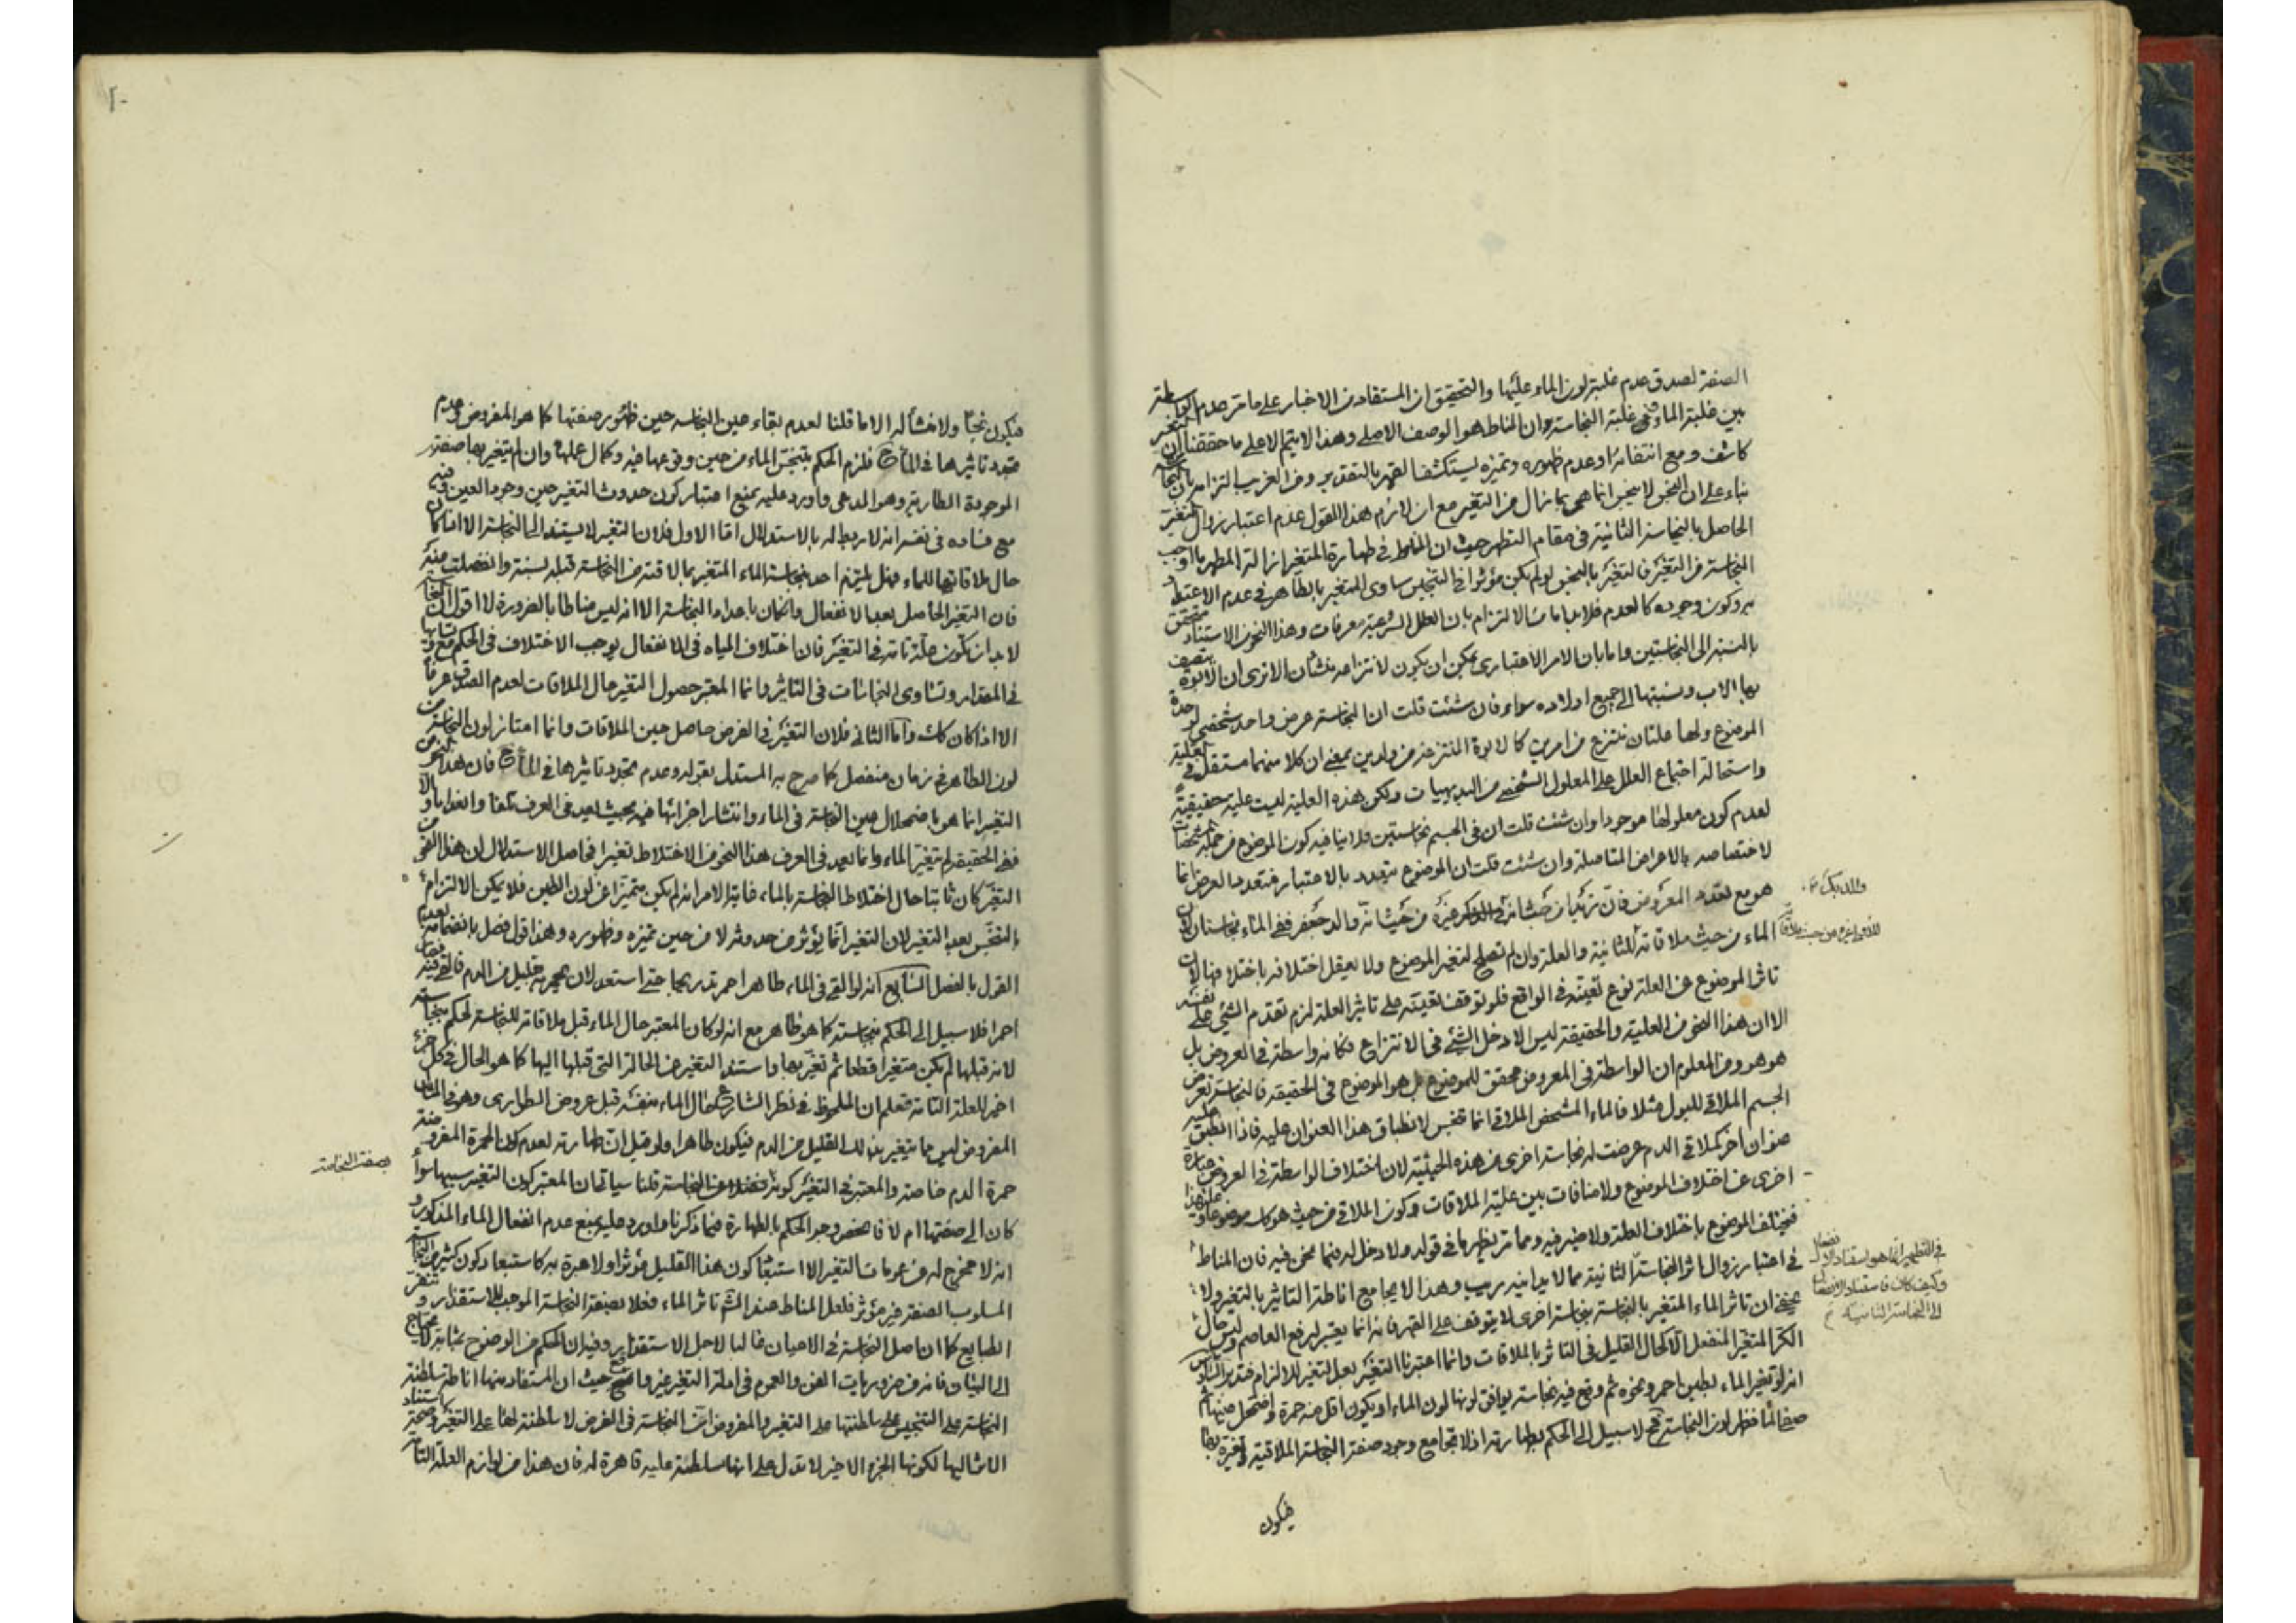 الصفة لصدق عدم غلبة لون الماء عليها والتحقيق ان المستفاد من الاخبار على ما مر عدم الواسطة
بين غلبة الماء وغلبة النجاسة وان المناط هو الوصف الاصلي وهذا لا يتم الا على ما حققنا ان التغير
كاشف ومع انتفائه او عدم ظهوره وتميزه يستكشف القهر بالتقدير ومن الغريب التزامه بان النجاسة
بناء على ان النجس لا ينجس انما هي بما زال من التغير مع ان لازم هذا القول عدم اعتبار زوال التغير
الحاصل بالنجاسة الثانية في مقام التطهر حيث ان المناط في طهارة المتغير ازالة المطهر بالاوجب
النجاسة من التغير فالتغير بالنجس لو لم يكن مؤثرا في التنجيس ساوى المتغير بالطاهر في عدم الاعتداد
به وكون وجوده كالعدم فلا بد اما من الالتزام بان العلل الشرعية معرفات وهذا النحو من الاستناد متحقق
بالنسبة الى النجاستين واما بان الامر الاعتباري يمكن ان يكون لانتزاعه منشأن الا ترى ان الابوة يتصف
بها الاب ونسبتها الى جميع اولاده سواء فان شئت قلت ان النجاسة عرض واحد شخصي لوحدة
الموضوع ولها علتان تنتزع من امرين كالابوة المنتزعة من ولدين بمعنى ان كلا منهما مستقل في العلية
واستحالة اجتماع العلل على المعلول الشخصي من البديهيات ولكن هذه العلية ليست علية حقيقية
لعدم كون معلولها موجودا وان شئت قلت ان في الجسم نجاستين فلا ينافيه كون الموضوع من جملة المشخصات
لاختصاصه بالاعراض المتاصلة وان شئت قلت ان الموضوع يتعدد بالاعتبار فتعدد العرض انما
هو مع تعدد المعروض فان زيدا من حيث انه والد بكر غيره من حيث انه والد جعفر ففي الماء نجاستان لان
الماء من حيث ملاقاته للثانية والعلة وان لم تصلح لتغير الموضوع ولا يعقل اختلافه باختلافها لان
تاثر الموضوع عن العلة نوع تعينه في الواقع فلو توقف تعينه على تاثير العلة لزم تقدم الشيء على نفسه
الا ان هذا النحو من العلية والحقيقة ليس الا دخل الشيء في الانتزاع فكانه واسطة في العروض بل
هو هو ومن المعلوم ان الواسطة في العروض محقق للموضوع بل هو الموضوع في الحقيقة فالنجاسة تعرض
الجسم الملاقي للبول مثلا فالماء المشخص الملاقي انما تنجس لانطباق هذا العنوان عليه فاذا انطبق عليه
عنوان اخر كملاقي الدم عرضت له نجاسة اخرى من هذه الحيثية لان اختلاف الواسطة في العروض عبارة
اخرى عن اختلاف الموضوع ولا منافات بين علية الملاقات وكون الملاقي من حيث هو كك موضوعا وعلى هذا
فيختلف الموضوع باختلاف العلة ولا ضير فيه ومما مر يظهر ما في قوله ولا دخل له فيما نحن فيه فان المناط
في اعتبار زوال اثر النجاسة الثانية مما لا يدانيه ريب وهذا لا يجامع اناطة التاثير بالتغير ولا
يخفى ان تاثر الماء المتغير بالنجاسة بنجاسة اخرى لا يتوقف على القهر فانه انما يعتبر لرفع العاصم وليس حال
الكر المتغير المنفعل الا كحال القليل في التاثر بالملاقات وانما اعتبرنا التغير بعد التغير للالزام فتدبر السادس
انه لو تغير الماء بطين احمر ونحوه ثم وقع فيه نجاسة يوافق لونها لون الماء او يكون اقل منه حمرة واضمحل عينها ثم
صفا الماء فظهر لون النجاسة فح لا سبيل الى الحكم بطهارته اذ لا يجامع وجود صفة النجاسة الملاقية وتغيره بها
فيكون
والد بكر
للاولى غيره من حيث ملاقاته
في التطهير انما هو استناد الانفعال
وكيف كان فاستناد الانفعال
الى النجاسة الثانية
فيكون نجسا ولا منشأ له الا ما قلنا لعدم بقاء عين النجاسة حين ظهور صفتها كما هو المفروض وعدم
تجدد تاثيرها في الماء ح فلزم الحكم بتنجس الماء من حين وقوعها فيه وكمال عملها وان لم يتغير بها صفته
الموجودة الطارية وهو المدعى واورد عليه بمنع اعتبار كون حدوث التغير حين وجود العين فيه
مع فساده في نفسه انه لا ربط له بالاستدلال اما الاول فلان التغير لا يستند الى النجاسة الا اذا كان
حال ملاقاتها للماء فهل يلتزم احد بنجاسة الماء المتغير بما لاقته من النجاسة قبله بسنة وانفصلت منه
فان التغير الحاصل بعد الانفعال وان كان باعداد النجاسة الا انه ليس مناطا بالضرورة لا اقول ان النجاسة
لا بد ان تكون علة تامة في التغير فان اختلاف المياه في الانفعال يوجب الاختلاف في الحكم مع تساويها
في المقدار وتساوي النجاسات في التاثير وانما المعتبر حصول التغير حال الملاقات لعدم الصدق عرفا
الا اذا كان كك واما الثاني فلان التغير في الفرض حاصل حين الملاقات وانما امتاز لون النجاسة من
لون الطاهر في زمان منفصل كما صرح به المستدل بقوله وعدم تجدد تاثيرها في الماء ح فان هذا النحو من
التغير انما هو باضمحلال عين النجاسة في الماء وانتشار اجزائها فيه بحيث يعد في العرف تلفا وانعداما والا
ففي الحقيقة لم يتغير الماء وانما يعد في العرف هذا النحو من الاختلاط تغيرا فحاصل الاستدلال ان هذا النحو من
التغير كان ثابتا حال اختلاط النجاسة بالماء غاية الامر انه لم يكن متميزا عن لون الطين فلا يمكن الالتزام
بالتنجس بعد التغير لان التغير انما يؤثر من حدوثه لا من حين تميزه وظهوره وهذا قول فصل بانضمامه بعدم
القول بالفصل السابع انه لو القي في الماء طاهر احمر تدريجا حتى استعد لان يحمر بقليل من الدم فالقي فيه فصار
احمر فلا سبيل الى الحكم بنجاسته كما هو ظاهر مع انه لو كان المعتبر حال الماء قبل ملاقاته للنجاسة لحكم بنجاسته
لانه قبلها لم يكن متغيرا قطعا ثم تغير بها واستند التغير عن الحالة التي قبلها اليها كما هو الحال في كل جزء
اخير للعلة التامة فتعلم ان الملحوظ في نظر الشارع حال الماء بنفسه قبل عروض الطواري وهو في المثال
المفروض ليس مما يتغير بذلك القليل من الدم فيكون طاهرا ولو قيل ان طهارته لعدم كون الحمرة المفروضة
حمرة الدم خاصة والمعتبر في التغير كونه بصفة النجاسة قلنا سياتي ان المعتبر كون التغير بسببها سواء
كان الى صفتها ام لا فانحصر وجه الحكم بالطهارة فيما ذكرنا واورد عليه بمنع عدم انفعال الماء المذكور و
انه لا مخرج له من عمومات التغير الا استبعاد كون هذا القليل مؤثرا ولا عبرة به كاستبعاد كون كثير من النجاسة
المسلوب الصفة غير مؤثر فلعل المناط عند الشرع تاثر الماء فعلا بصفة النجاسة الموجب للاستقذار وتنفر
الطبايع كما ان اصل النجاسة في الاعيان غالبا لاجل الاستقذار وفيه ان الحكم من الوضوح بمثابة لا يحتاج
الى البيان فانه من ضروريات الفن والعموم في ادلة التغير غير واضح حيث ان المستفاد منها اناطة سلطنة
النجاسة على التنجيس على سلطنتها على التغير والمفروض ان النجاسة في الفرض لا سلطنة لها على التغير وصحة استناد
الاثر اليها لكونها الجزء الاخير لا يدل على انها سلطنة عليه قاهرة له فان هذا من لوازم العلة التامة
بصفة النجاسة